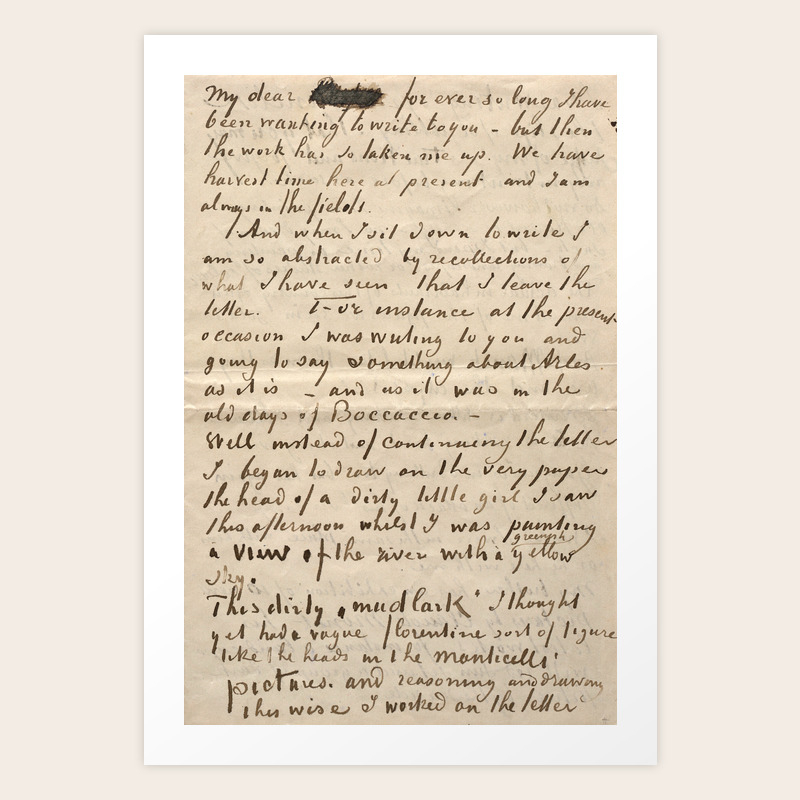 My dear for ever so long I have
been wanting to write to you - but then
the work has so taken me up. We have
harvest time here at present and I am
always in the fields.
And when I sit down to write I
am so abstracted by recollections of
what I have seen that I leave the
letter. For instance at the present
occasion I was writing to you and
going to say something about Arles
as it is - and as it was in the
old days of Boccaccio. -
Well instead of continuing the letter
I began to draw on the very paper
the head of a dirty little girl I saw
this afternoon whilst I was painting
a view of the river with a greenish yellow
sky.
This dirty „mudlark" I thought
yet had a vague florentine sort of figure
like the heads in the monticelli
pictures. and reasoning and drawing
this wise I worked on the letter